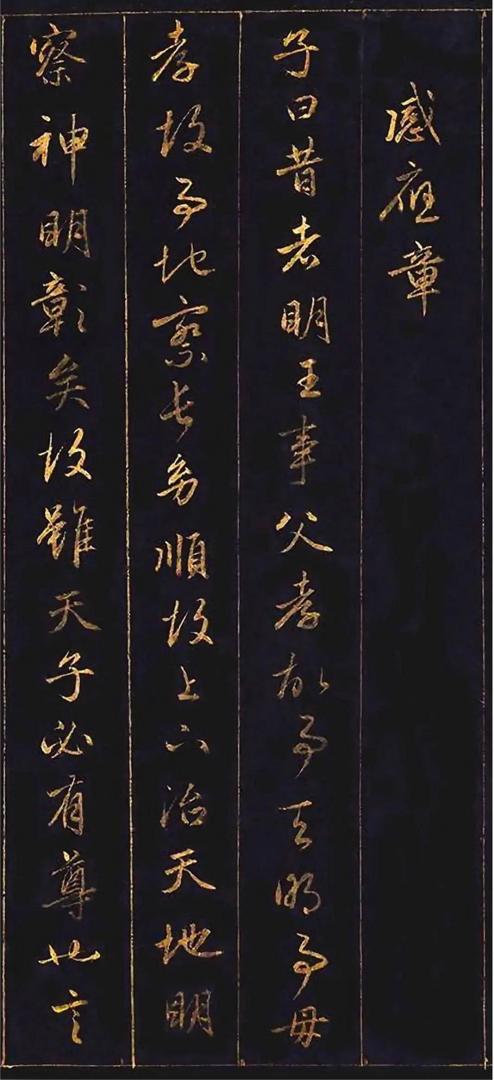 感應章
子曰昔者明王事父孝故事天明事母
孝故事地察長幼順故上下治天地明
察神明彰矣故雖天子必有尊也言